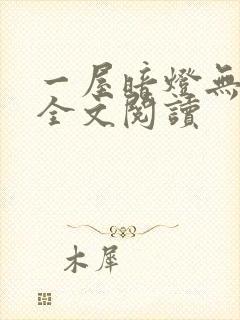 一屋暗燈無
全文閱讀
木犀